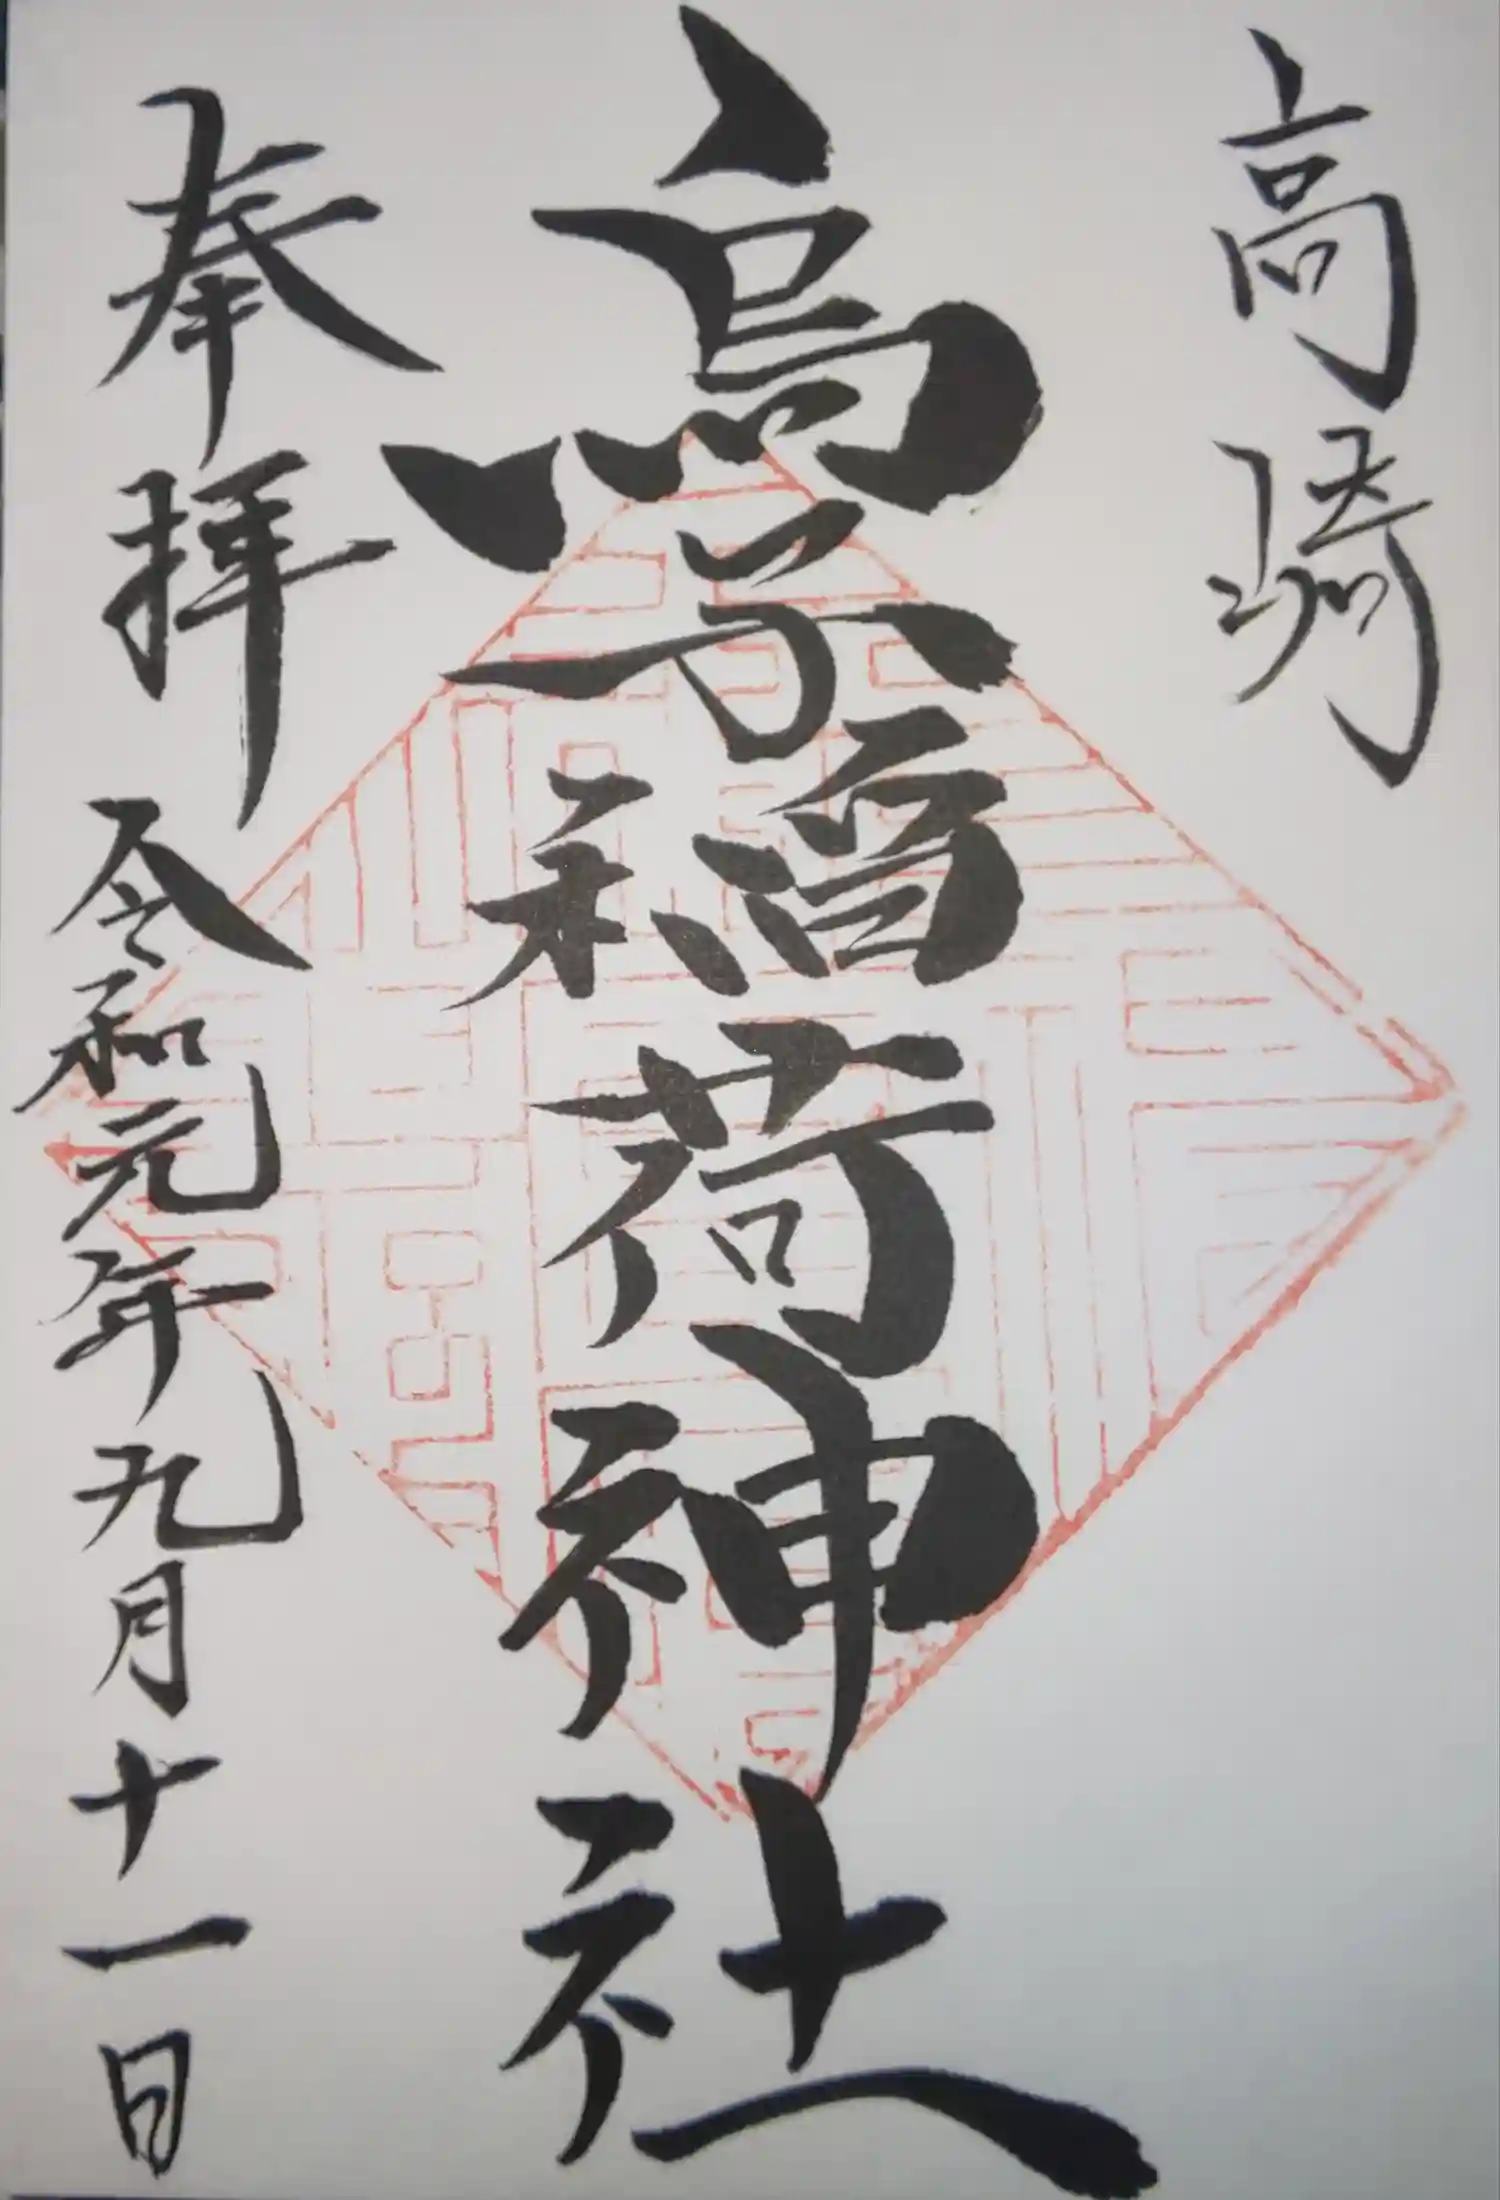 高崎
烏子稲荷神社
奉拝 令和元年九月十一日